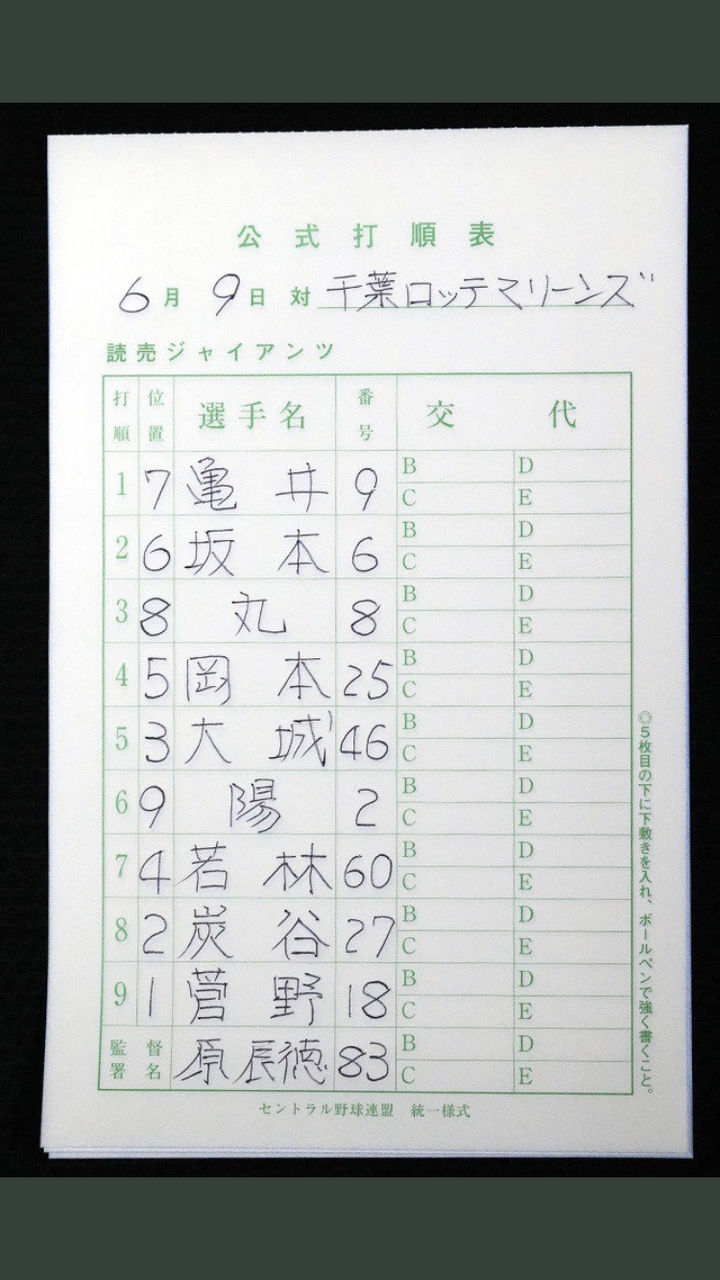 公式打順表
6月 9日 対 千葉ロッテマリーンズ
読売ジャイアンツ
打順 位置 選手名 番号 交代
1 7 亀井 9 B D
C E
2 6 坂本 6 B D
C E
3 8 丸 8 B D
C E
4 5 岡本 25 B D
C E
5 3 大城 46 B D
C E
6 9 陽 2 B D
C E
7 4 若林 60 B D
C E
8 2 炭谷 27 B D
C E
9 1 菅野 18 B D
C E
監督署名 原辰徳 83 B D
C E
◎5枚目の下に下敷きを入れ、ボールペンで強く書くこと。
セントラル野球連盟 統一様式